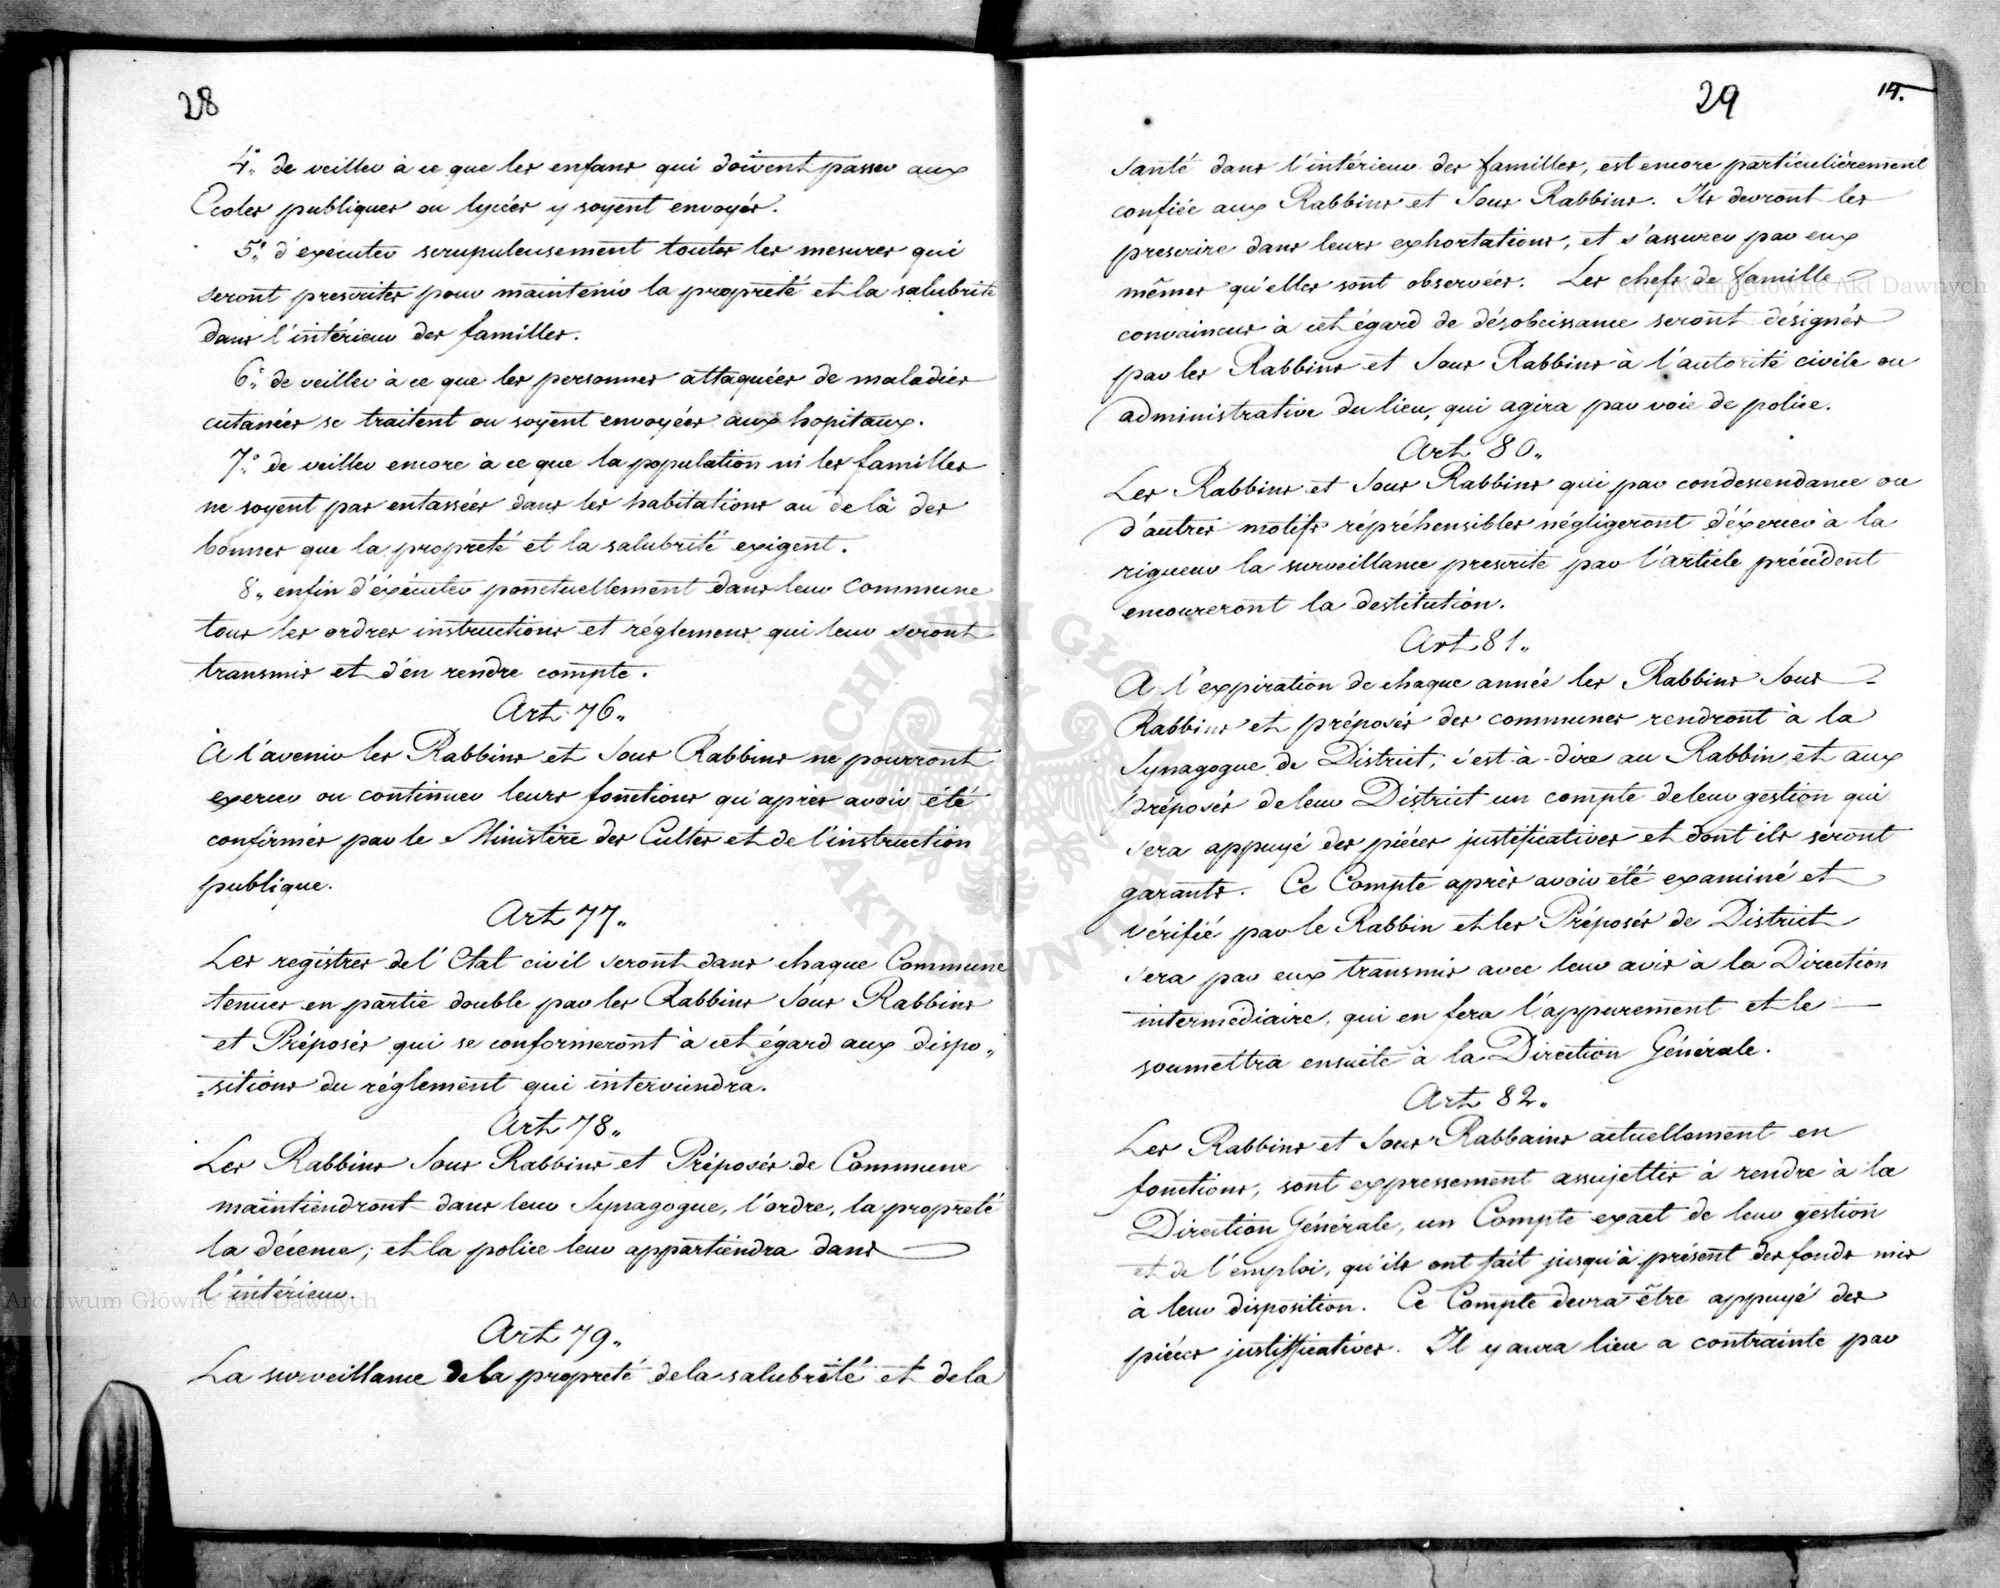 28
4°. de veiller à ce que les enfans qui doivent passer aux
Ecoles publiques ou lycées y soyent envoyés.
5°. d'executer scrupuleusement toutes les mesures qui
seront prescrites pour maintenir la propreté et la salubrité
dans l'intérieur des familles.
6°. de veiller à ce que les personnes attaquées de maladies
cutanées se traitent ou soyent envoyées aux hopitaux.
7°. de veiller encore à ce que la population ni les familles
ne soyent pas entassées dans les habitations au delà des
bornes que la propreté et la salubrité exigent.
8°. enfin d'éxécuter ponctuellement dans leur Commune
tous les ordres instructions et réglemens qui leur seront
transmis et d'en rendre compte.
Art. 76.,
A l'avenir les Rabbins et Sous Rabbins ne pourront
exercer ou continuer leurs fonctions qu'après avoir été
confirmés par le Ministère des Cultes et de l'instruction
publique.
Art 77.,
Les registres de l'Etat civil seront dans chaque Commune
tenues en partie double par les Rabbins Sous Rabbins
et Préposés qui se conformeront à cet égard aux dispo„
=sitions du réglement qui interviendra.
Art 78.,
Les Rabbins Sous Rabbins et Préposés de Commune
maintiendront dans leur Synagogue, l'ordre, la propreté
la décence; et la police leur appartiendra dans
l'intérieur.
Art 79.,
La surveillance de la propreté de la salubrité et de la
29
14.
santé dans l'intérieur des familles, est encore particulièrement
confiée aux Rabbins et Sous Rabbins. Ils devront les
prescrire dans leurs exhortations, et s'assurer par eux
mêmes qu'elles sont observées. Les chefs de famille
convaincus à cet égard de désobeissance seront désignés
par les Rabbins et Sous Rabbins à l'autorité civile ou
administrative du lieu, qui agira par voie de police.
Art 80.,
Les Rabbins et Sous Rabbins qui par condescendance ou
d'autres motifs répréhensibles négligeront d'éxercer à la
rigueur la surveillance prescrite par l'article précédent
encoureront la destitution.
Art 81.,
A l'expiration de chaque année les Rabbins Sous
Rabbins et préposés des communes rendront à la
Synagogue de District, c'est-à-dire au Rabbin et aux
Préposés de leur District un compte de leur gestion qui
sera appuyé des piéces justificatives et dont ils seront
garants. Ce Compte après avoir été examiné et
vérifié par le Rabbin et les Préposés de District
sera par eux transmis avec leur avis à la Direction
intermédiaire, qui en fera l'appurement et le
soumettra ensuite à la Direction Générale.
Art 82.,
Les Rabbins et Sous Rabbains actuellement en
fonctions, sont expressement assujettis à rendre à la
Direction Générale, un Compte exact de leur gestion
et de l'emploi, qu'ils ont fait jusqu'à présent des fonds mis
à leur disposition. Ce Compte devra être appuyé des
piéces justifficatives. Il y aura lieu a contrainte par
Archiwum Główne Akt Dawnych
Archiwum Główne Akt Dawnych
ARCHIWUM GŁÓWNE AKT DAWNYCH